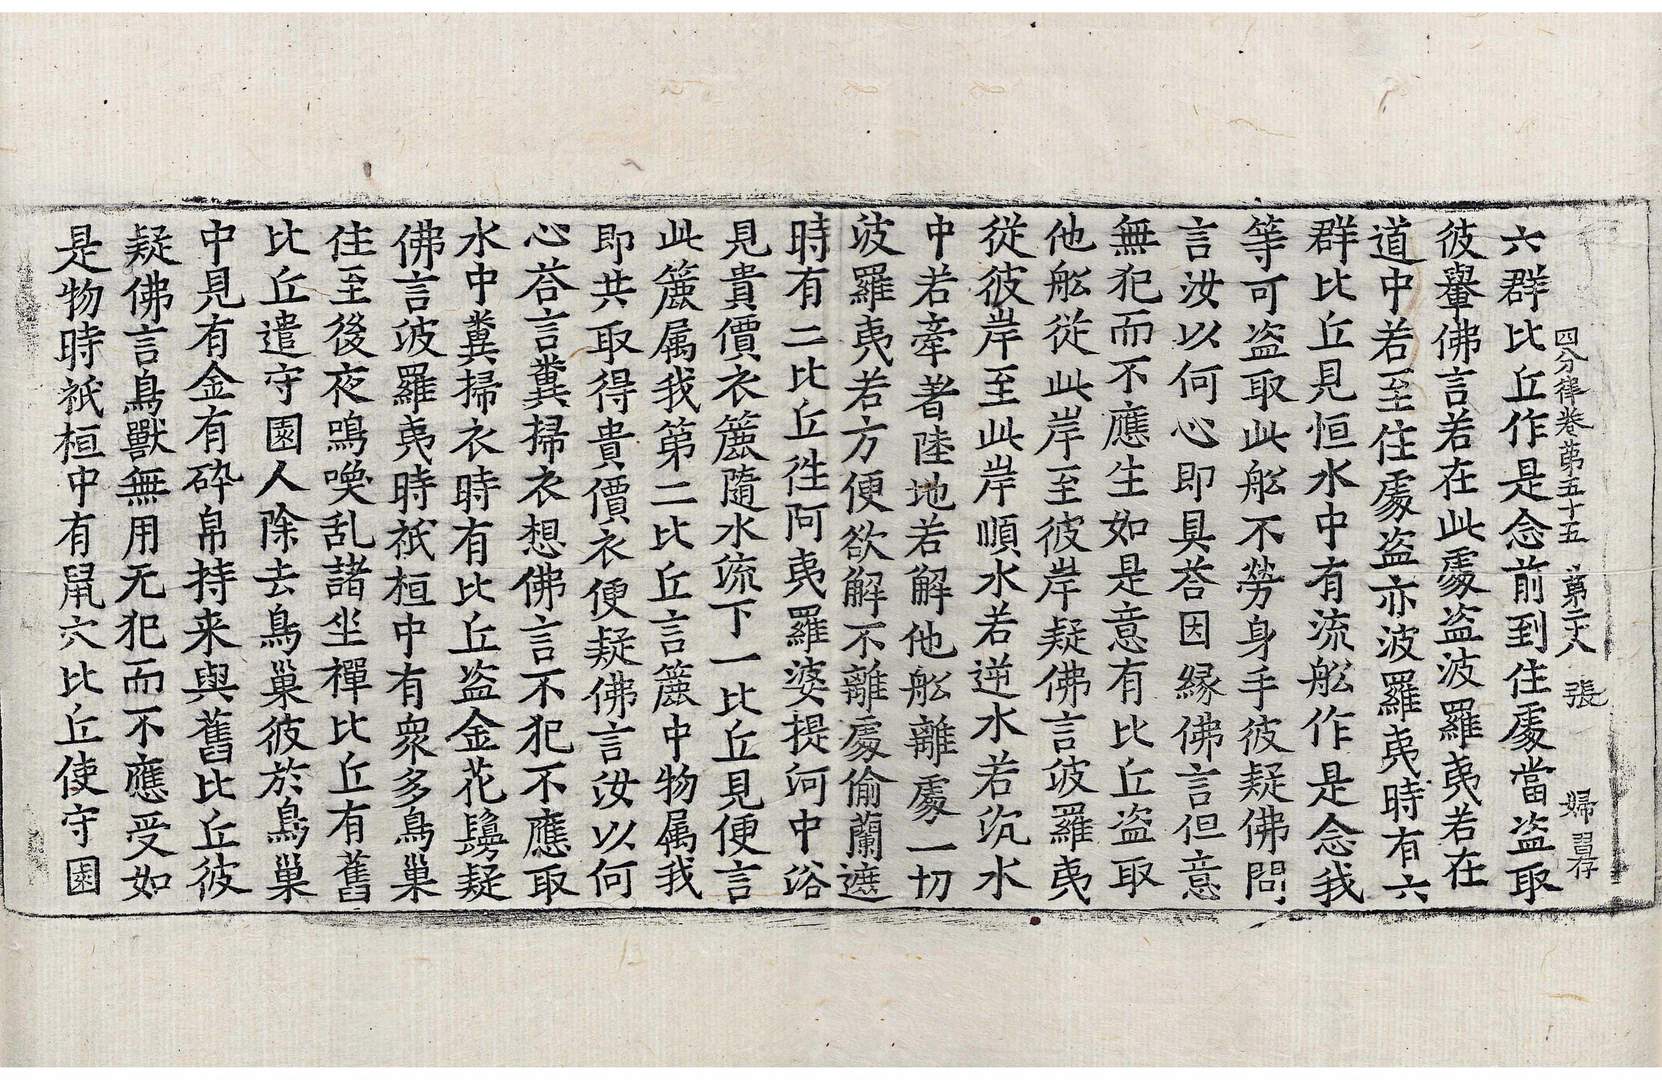 四分律卷第五十五 第六張 婦 習存
六群比丘作是念前到住處當盗取
彼轝佛言若在此處盗波羅夷若在
道中若至住處盗亦波羅夷時有六
群比丘見恒水中有流舩作是念我
等可盗取此舩不勞身手彼疑佛問
言汝以何心即具荅因緣佛言但意
無犯而不應生如是意有比丘盗取
他舩從此岸至彼岸疑佛言波羅夷
從彼岸至此岸順水若逆水若沉水
中若牽著陸地若解他舩離處一切
波羅夷若方便欲解不離處偷蘭遮
時有二比丘徃阿夷羅婆提河中浴
見貴價衣簏隨水流下一比丘見便言
此簏属我第二比丘言簏中物属我
即共取得貴價衣便疑佛言汝以何
心荅言糞掃衣想佛言不犯不應取
水中糞掃衣時有比丘盗金花鬘疑
佛言波羅夷時祇桓中有衆多鳥巢
住至後夜鳴喚乱諸坐禪比丘有舊
比丘遣守園人除去鳥巢彼於鳥巢
中見有金有碎帛持来與舊比丘彼
疑佛言鳥獸無用无犯而不應受如
是物時祇桓中有鼠穴比丘使守園